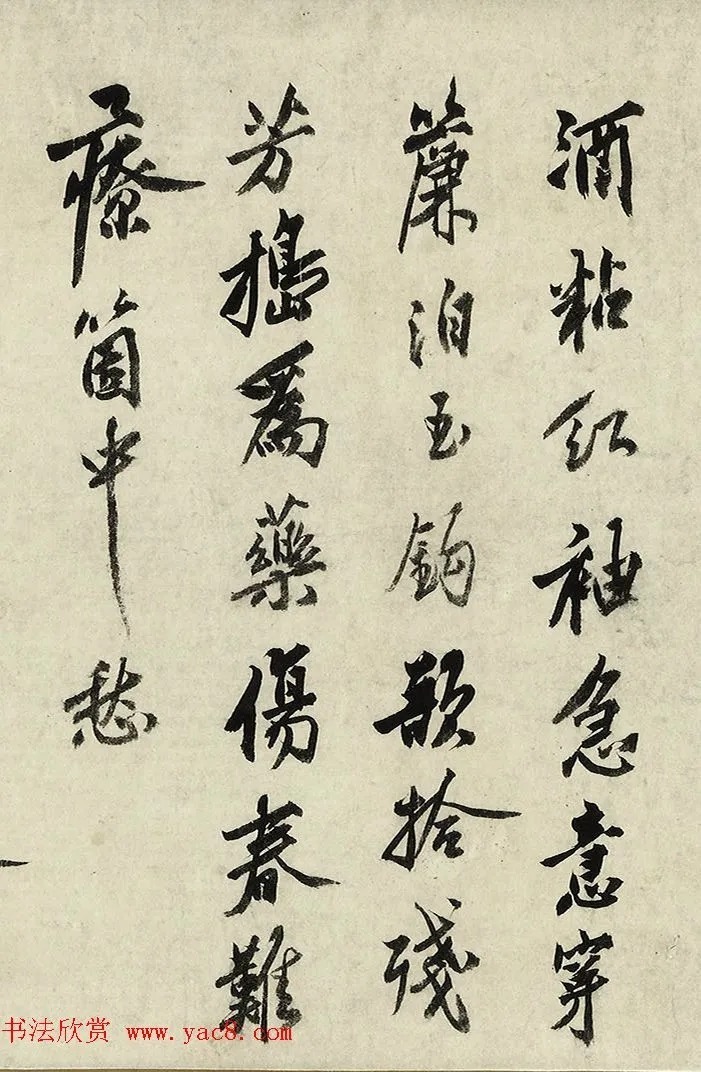 酒粘紅袖急意穿
簾泊玉鈎欲拾殘
芳搗為藥傷春難
療箇中愁
书法欣赏 www.yac8.com